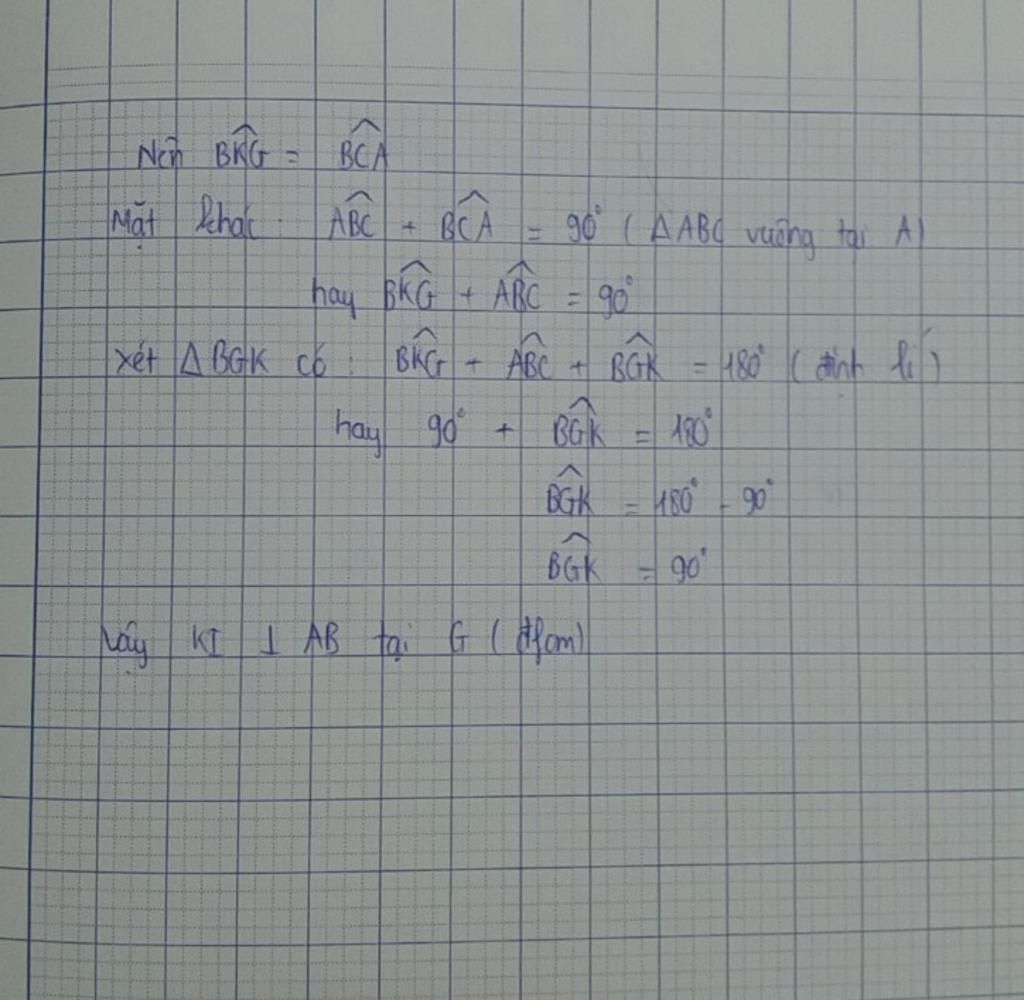 Nên BK̂G = BĈA
Mặt khác: AB̂C + BĈA = 90° (ΔABC vuông tại A)
hay BK̂G + AB̂C = 90°
Xét ΔBGK có: BK̂G + AB̂C + BĜK = 180° (định lí)
hay 90° + BĜK = 180°
BĜK = 180° - 90°
BĜK = 90°
Vậy KI ⊥ AB tại G (đfcm)